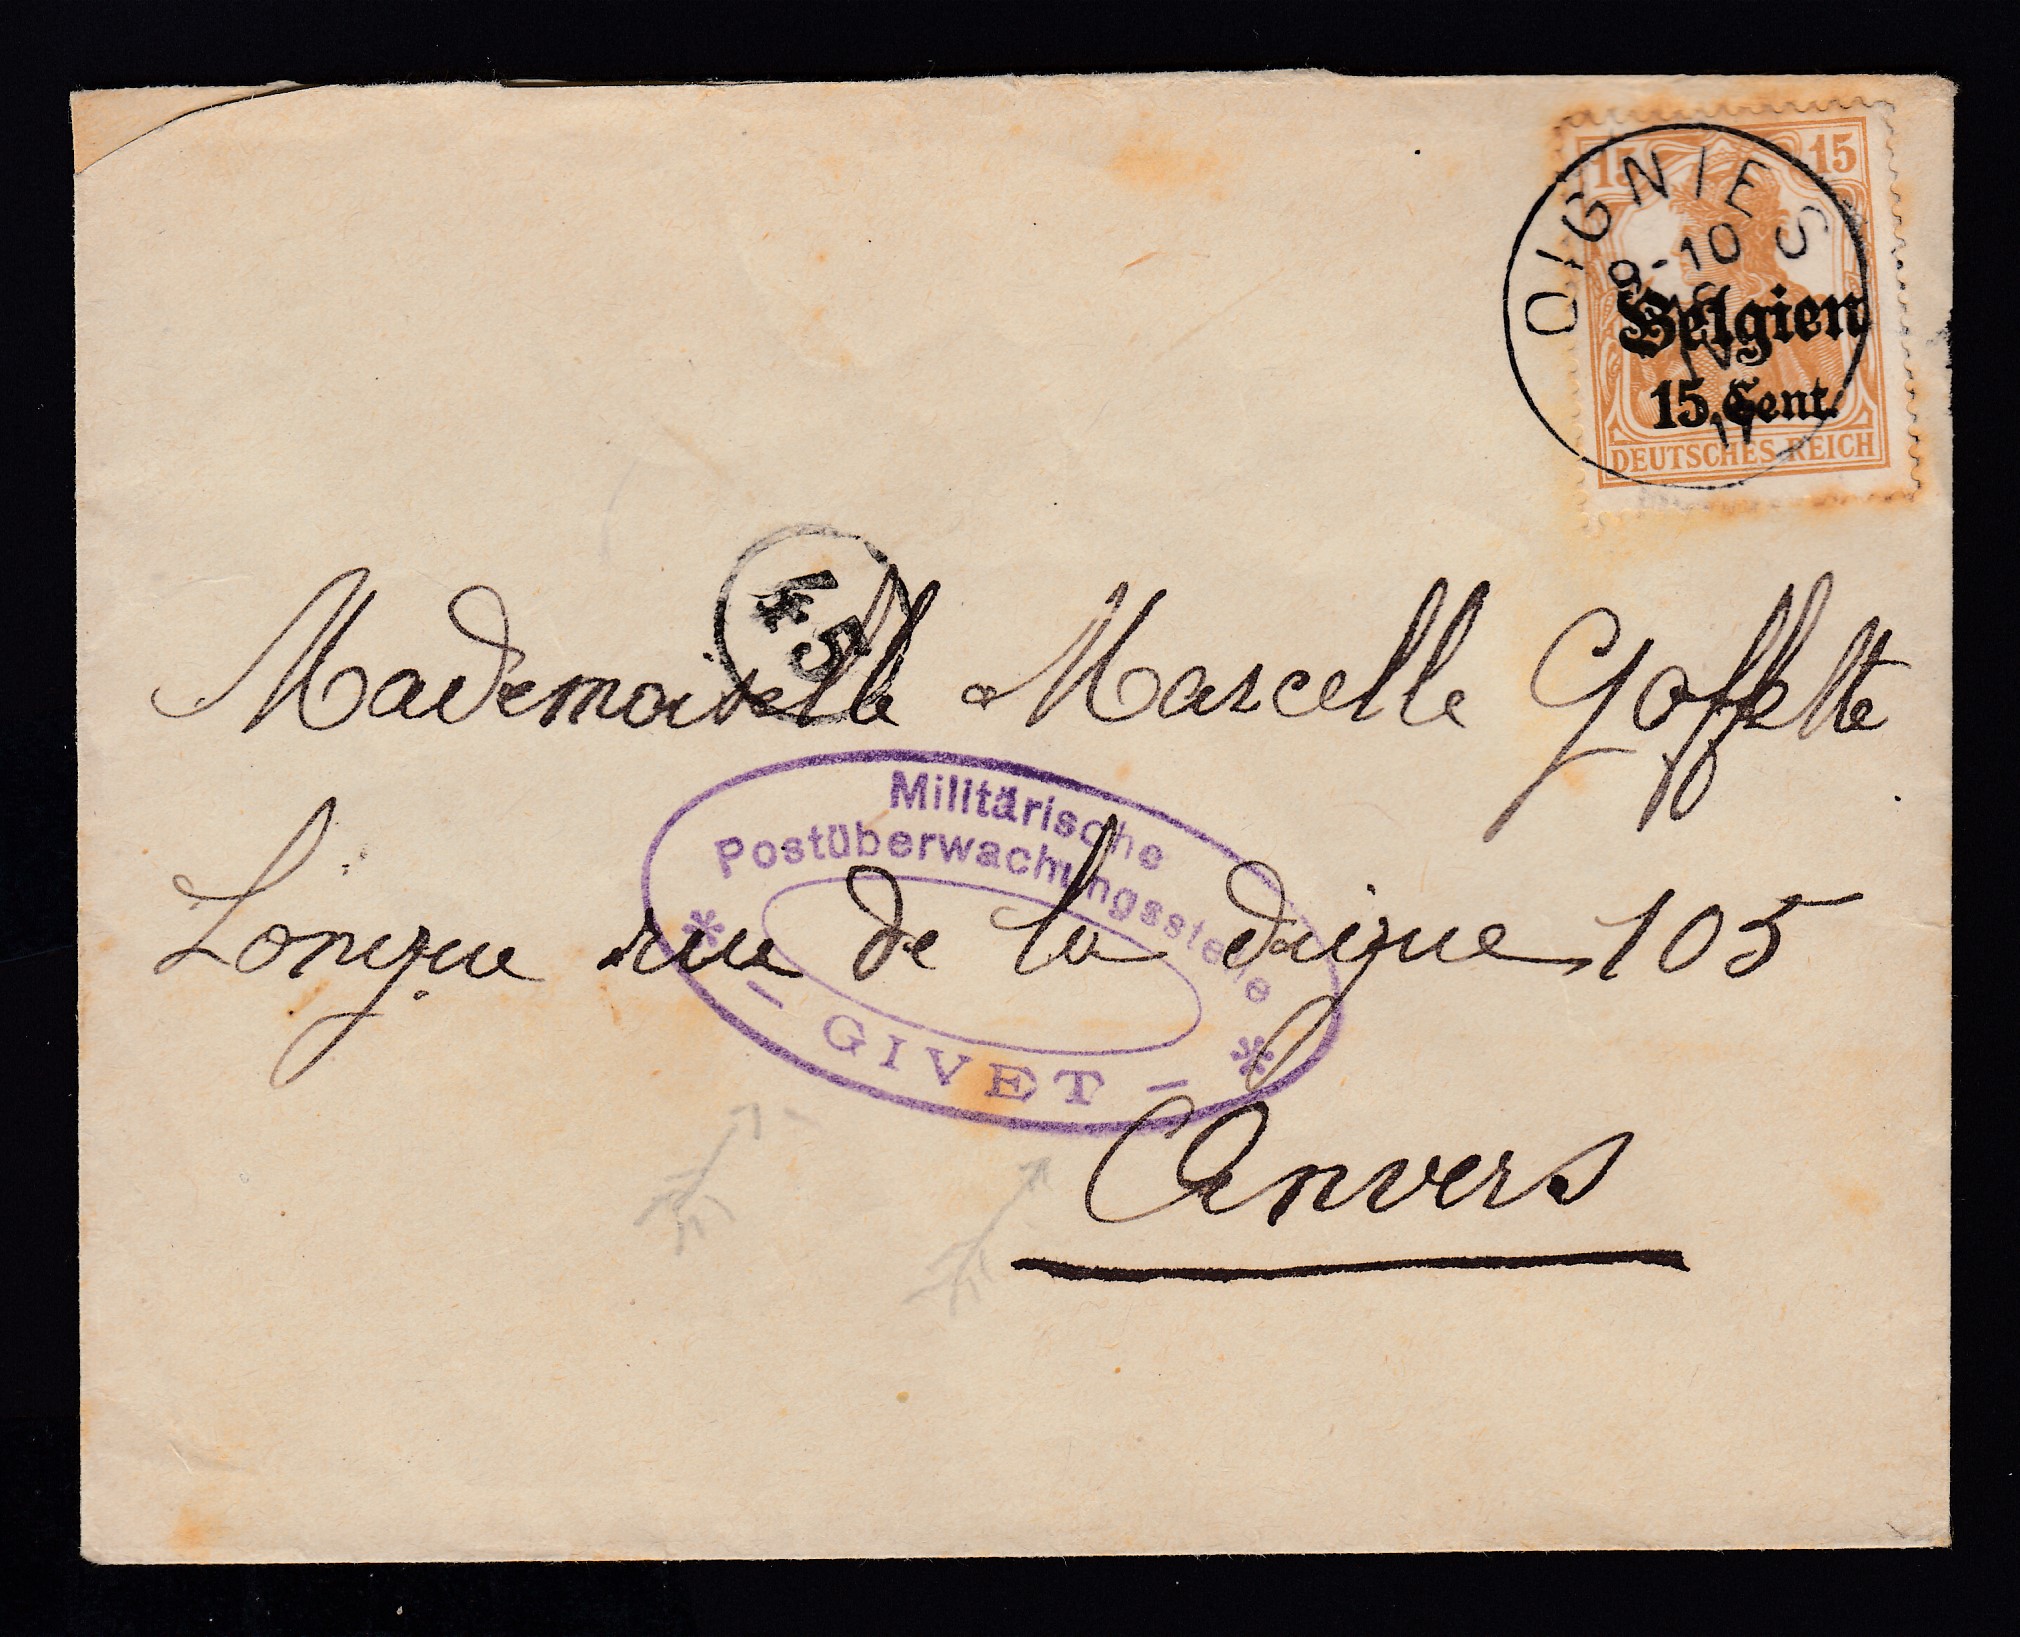 15 15
OIGNIES
9-10
IV
17
Belgien
15 Cent.
DEUTSCHES REICH
45
Mademoiselle Marcelle Goffette
Militärische
Postüberwachungsstelle
Longue rue de la daigue 105
- GIVET -
Anvers